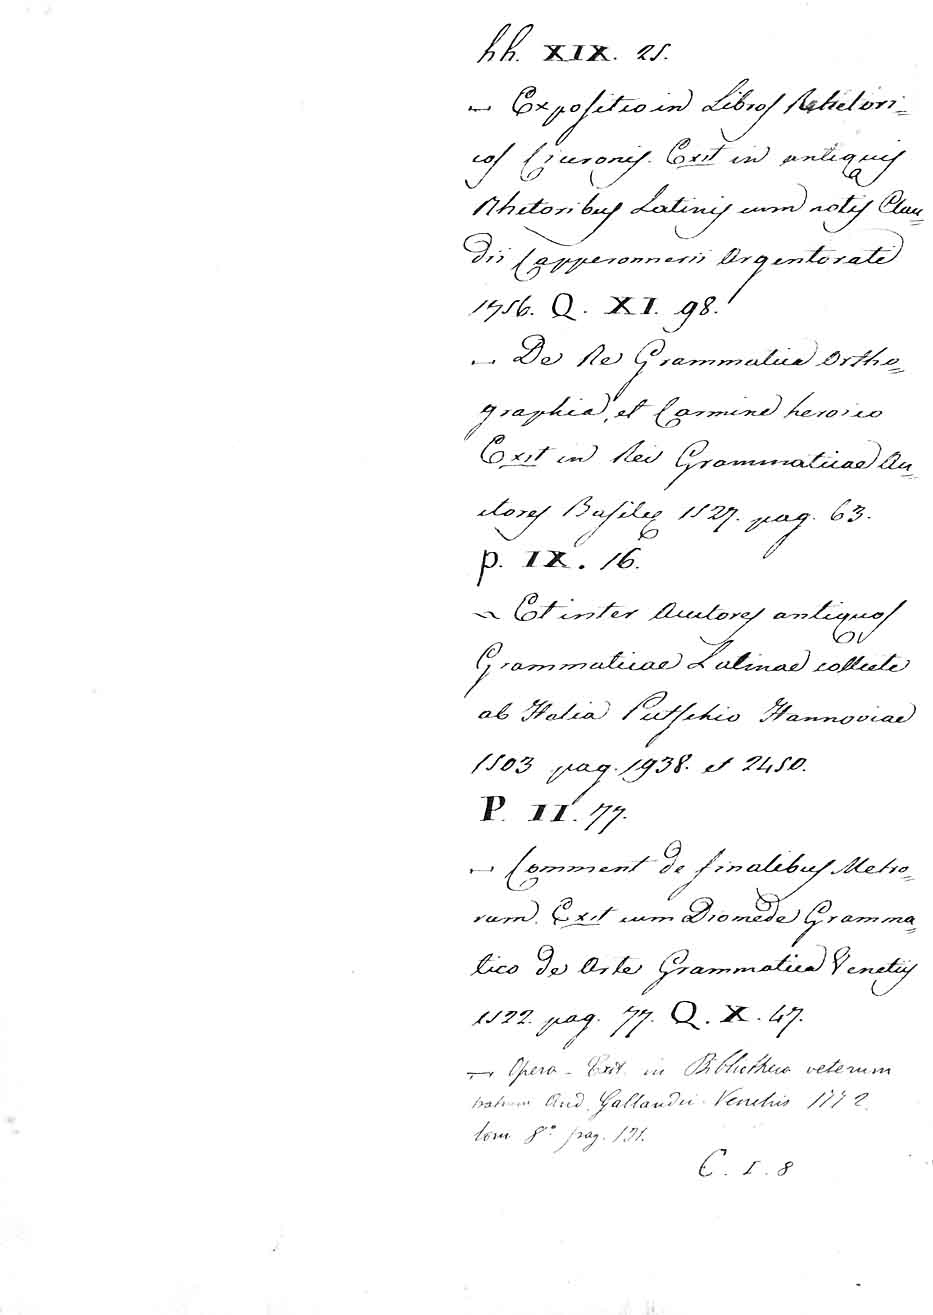 hh. XIX. 25.
— Expositio in Libros Rhetori=
cos Ciceronis. Exit in antiquis
Rhetoribus Latinis cum notis Clau=
dii Capperonnerii Argentorate
1756. Q. XI. 98.
— De Re Grammatica Ortho=
graphia, et Carmine heroico
Exit in Rei Grammaticae Au=
ctores Basileę 1527. pag. 63.
p. IX. 16.
— Et inter Auctores antiquos
Grammaticae Latinae collecte
ab Halia Putschio Hannoviae
1503 pag. 1938. et 2450.
P. II. 77.
— Comment de finalibus Metro=
rum. Exit cum Diomede Gramma=
tico de Arte Grammatica Venetiis
1522. pag. 77. Q. X. 47.
— Opera - Exit. in Bibliotheca veterum
patrum And. Gallandii Venetiis 1772.
tom. 8.° pag. 131.
C. I. 8